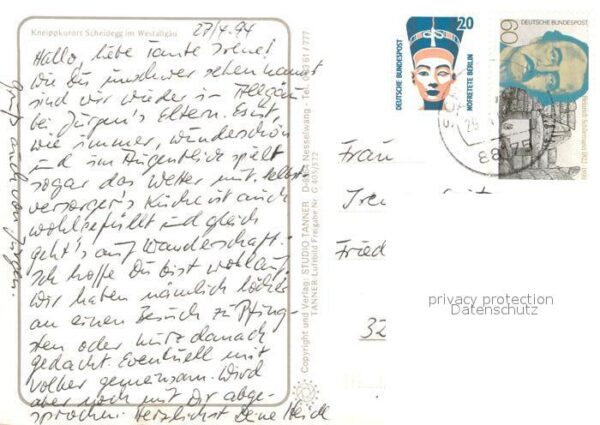 Kneippkurort Scheidegg im Westallgäu
27/4.94
Hallo, liebe Tante Irene!
Wie Du unschwer sehen kannst
sind wir wieder im Allgäu
bei Jürgen's Eltern. Es ist,
wie immer, wunderschön
und im Augenblick spielt
sogar das Wetter mit. Selbst-
versorger's Küche ist auch
wohlgefüllt und gleich
geht's auf Wanderschaft.
Ich hoffe Du bist wohlauf.
Wir haben nämlich
an einen Besuch zu Pfing-
sten oder kurz danach
gedacht. Eventuell mit
Volker gemeinsam. Wird
aber noch mit Dir abge-
sprochen. Herzlichst Deine Heidi
Gruß auch von Jürgen.
Copyright und Verlag: STUDIO TANNER Nesselwang - Tel. 361 / 777
TANNER-Luftbild Freigabe Nr. G 405/372
20
DEUTSCHE BUNDESPOST
NOFRETETE BERLIN
DEUTSCHE BUNDESPOST
60
Heinrich Schliemann 1822-1890
88175
Frau
Friede
32
privacy protection
Datenschutz